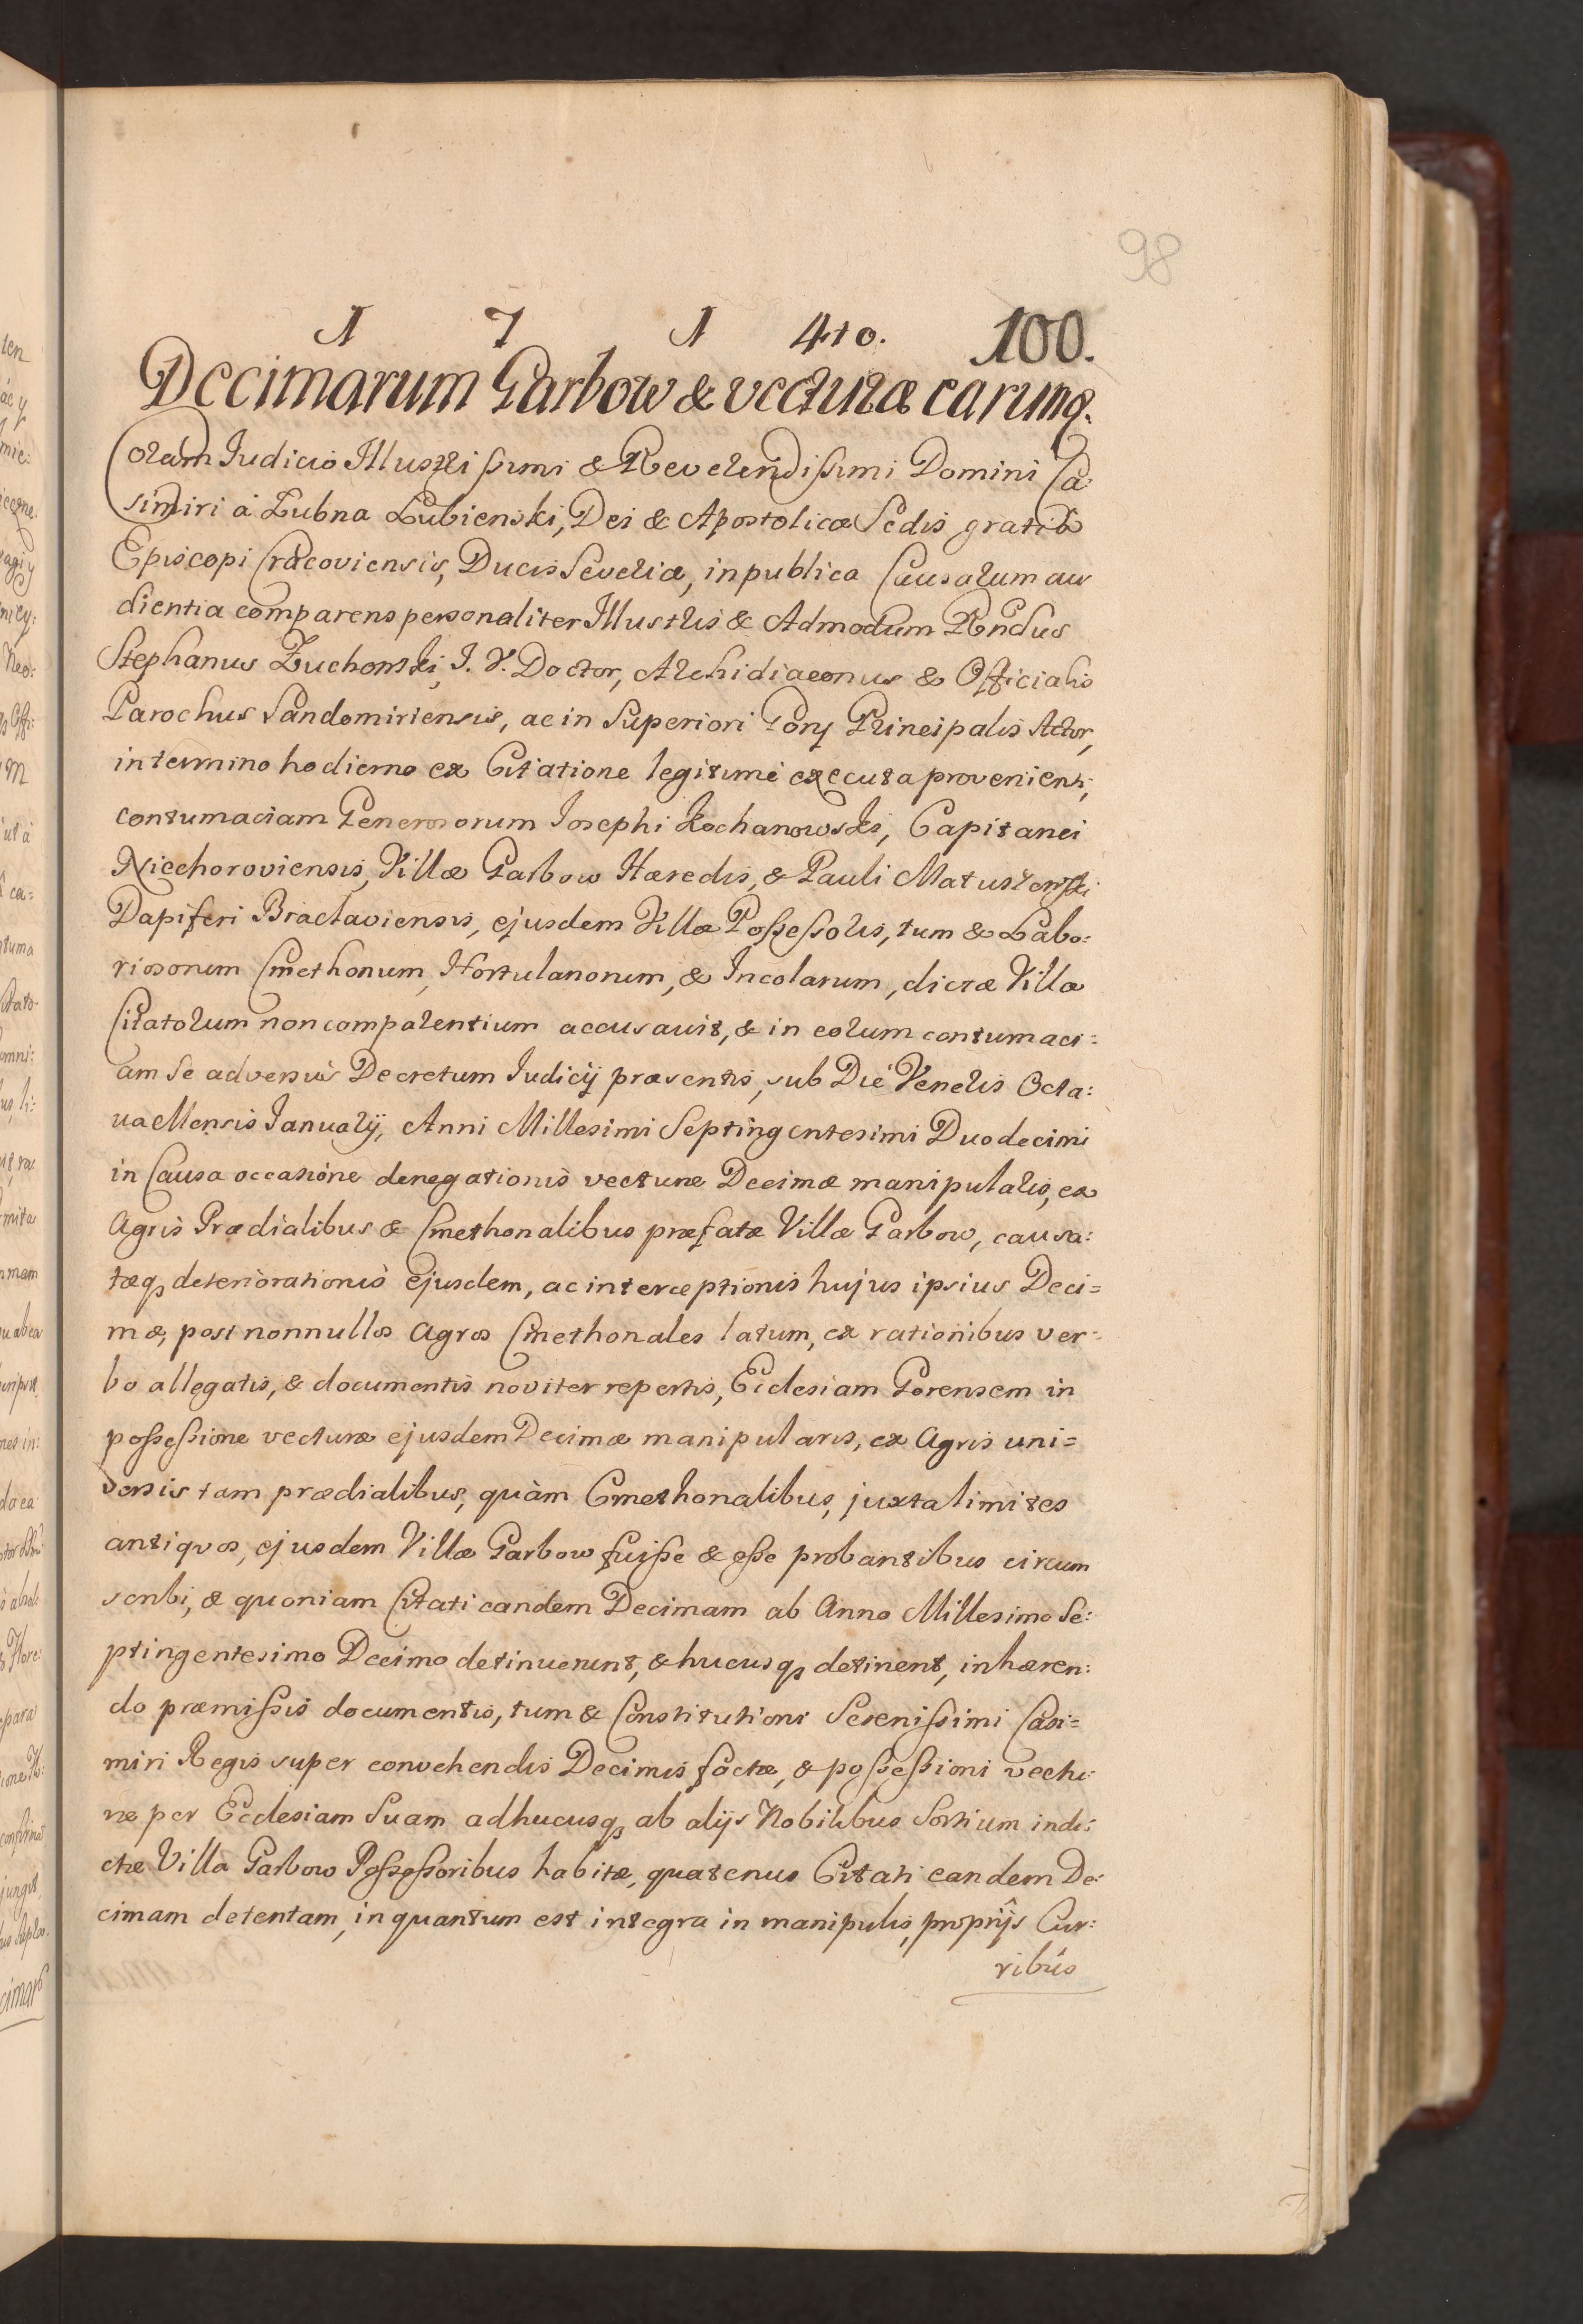 98
1 7 1 4to. 100.
Decimarum Garbow & vecturæ earunq.
Coram Iudicio Illustrissimi & Reverendissimi Domini Ca:
simiri á Łubna Łubienski, Dei & Apostolicæ Sedis gratiâ
Episcopi Cracoviensis, Ducis Severiæ, in publica Causarum au
dientia comparens personaliter Illustris & Admodum Rndus
Stephanus Zuchowski, I. V. Doctor, Archidiaconus & Officialis
Parochus Sandomiriensis, ac in Superiori Gory Principalis Actor,
in termino hodierno ex Citatione legitimè executa provenienti,
contumaciam Generosorum Iosephi Kochanowski, Capitanei
Niechoroviensis, Villæ Garbow Hæredis, & Pauli Matuszewski
Dapiferi Braclaviensis, ejusdem Villæ Possessoris, tum & Labo:
riosorum Cmethonum, Hortulanorum, & Incolarum, dictæ Villæ
Citatorum non comparentium accusavit, & in eorum contumaci=
am se adversùs Decretum Iudicij præsentis, sub Die Veneris Octa:
va Mensis Ianuarij, Anni Millesimi Septingentesimi Duodecimi
in Causa occasione denegationis vecturæ Decimæ manipularis, ex
Agris Prædialibus & Cmethonalibus præfatæ Villæ Garbow, causa:
tæq, deteriorationis ejusdem, ac interceptionis hujus ipsius Deci=
mæ, post nonnullos Agros Cmethonales latum, ex rationibus ver=
bo allegatis, & documentis noviter repertis, Ecclesiam Gorensem in
possessione vecturæ ejusdem Decimæ manipularis, ex Agris uni=
versis tam prædialibus, quàm Cmethonalibus, juxta limites
antiquos, ejusdem Villæ Garbow fuisse & esse probantibus circum
scribi, & quoniam Citati eandem Decimam ab Anno Millesimo Se:
ptingentesimo Decimo detinuerunt, & hucusq, detinent, inhæren:
do præmissis documentis, tum & Constitutioni Serenissimi Casi=
miri Regis super convehendis Decimis factæ, & possessioni vectu:
ræ per Ecclesiam Suam adhucusq, ab alijs Nobilibus Sortium indi:
ctæ Villa Garbow Possessoribus habitæ, quatenus Citati eandem De:
cimam detentam, in quantum est integra in manipulis, proprijs Cur:
ribus